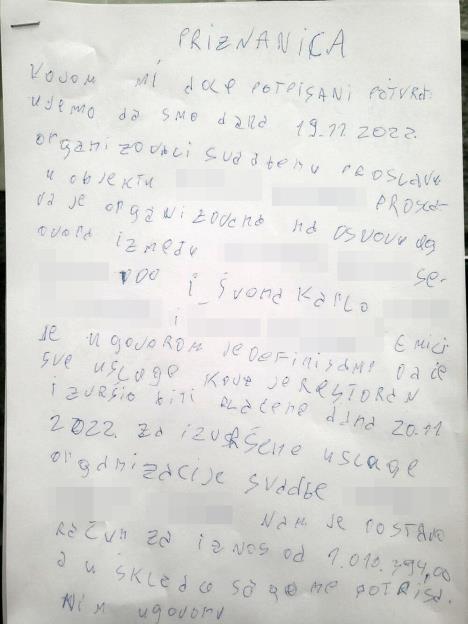 PRIZNANICA
Kojom mi dole potpisani potvrđ-
ujemo da smo dana 19.11 2022.
organizovali svadbenu proslavu
u objektu PROSLA-
va je organizovana na osnovu dog
ovora između
DOO i Švona Karlo se-
i
je ugovorom je definisano da će
sve usluge koja je RESTORAN
izvršio biti plaćene dana 20.11
2022. za izvršene usluge
organizacije svadbe
Nam je POSTAVIO
račun za iznos od 1.010.394,00
a u skladu sa potpisa-
nim ugovoru